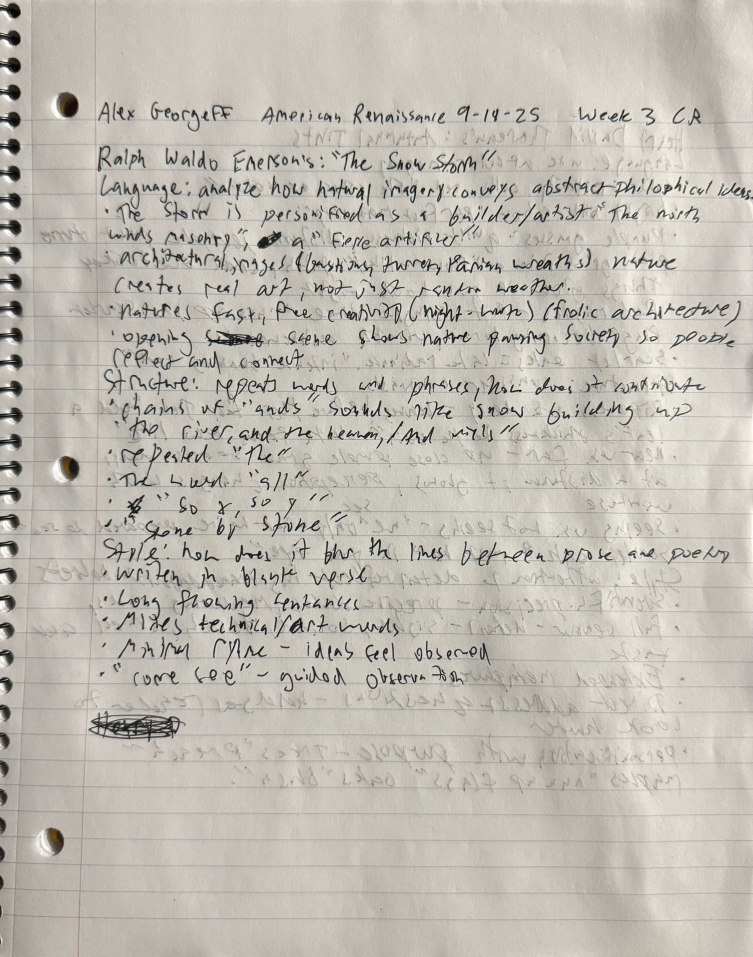 Alex Georgeff American Renaissance 9-14-25 Week 3 CR
Ralph Waldo Enerson's: "The Snow Storm"
Language: analyze how natural imagery conveys abstract philophical ideas.
• The Storm is personified as a builder/artist "The north
winds masonry", a "fierce artificer"
• architectural images (bastions, turret, Parian wreaths) nature
creates real art, not just random weather.
• natures fast, free creativity (night-work) (frolic architecture)
• opening scene shows nature pausing society so people
reflect and connect
Structure: repeats words and phrases, how does it contribute
• chains of "ands" sounds like snow building up
"the river, and the heaven, / And veils"
• repeated "the"
• The word "all"
• "So x, so y"
• "Stone by stone"
Style: how does it blur the lines between prose and poetry
• Writen in blank verse
• Long flowing sentances
• Mixes technical/art words
• Minimal ryme - ideas feel observed
• "come see" - guided observation